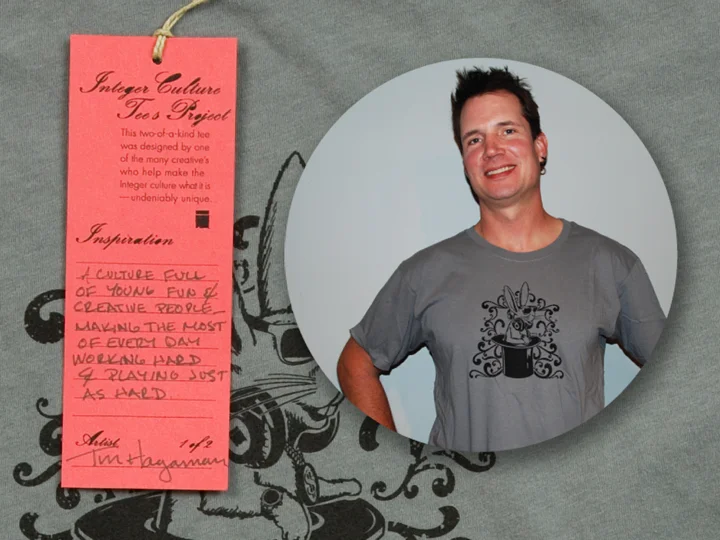 Integer Culture
Tees Project
This two-of-a-kind tee
was designed by one
of the many creative's
who help make the
Integer culture what it is
— undeniably unique.
Inspiration
A CULTURE FULL
OF YOUNG FUN &
CREATIVE PEOPLE
MAKING THE MOST
OF EVERY DAY
WORKING HARD
& PLAYING JUST
AS HARD.
Artist 1 of 2
Tim Hagaman